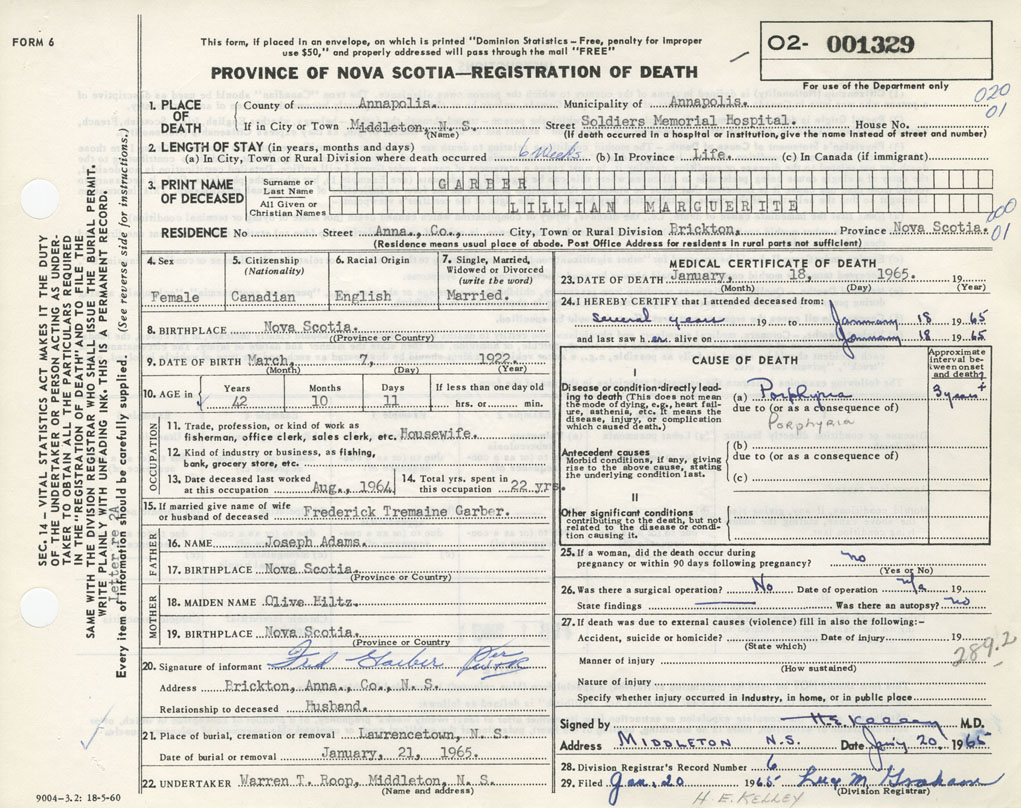 FORM 6
This form, if placed in an envelope, on which is printed "Dominion Statistics – Free, penalty for improper
use $50," and properly addressed will pass through the mail "FREE"
PROVINCE OF NOVA SCOTIA—REGISTRATION OF DEATH
02- 001329
For use of the Department only
020
01
1. PLACE OF DEATH
County of Annapolis. Municipality of Annapolis.
If in City or Town Middleton, N. S. Street Soldiers Memorial Hospital. House No.
(Name) (If death occurred in a hospital or institution, give the name instead of street and number)
2. LENGTH OF STAY (in years, months and days)
(a) In City, Town or Rural Division where death occurred 6 Weeks (b) In Province Life. (c) In Canada (if immigrant)
3. PRINT NAME OF DECEASED
Surname or Last Name GARBER
All Given or Christian Names LILLIAN MARGUERITE
000
01
RESIDENCE No Street Anna., Co., City, Town or Rural Division Brickton, Province Nova Scotia.
(Residence means usual place of abode. Post Office Address for residents in rural parts not sufficient)
4. Sex Female
5. Citizenship (Nationality) Canadian
6. Racial Origin English
7. Single, Married, Widowed or Divorced (write the word) Married.
8. BIRTHPLACE Nova Scotia.
((Province or Country)
9. DATE OF BIRTH March, 7, 1922
(Month) (Day) (Year)
10. AGE in Years Months Days If less than one day old
42 10 11 hrs. or min.
OCCUPATION
11. Trade, profession, or kind of work as
fisherman, office clerk, sales clerk, etc. Housewife.
12. Kind of industry or business, as fishing,
bank, grocery store, etc.
13. Date deceased last worked at this occupation Aug., 1964
14. Total yrs. spent in this occupation 22 yrs.
15. If married give name of wife
or husband of deceased Frederick Tremaine Garber.
FATHER
16. NAME Joseph Adams.
17. BIRTHPLACE Nova Scotia.
(Province or Country)
MOTHER
18. MAIDEN NAME Olive Hiltz.
19. BIRTHPLACE Nova Scotia.
(Province or Country
20. Signature of informant Fred Garber Per
Address Brickton, Anna., Co., N. S.
Relationship to deceased Husband.
21. Place of burial, cremation or removal Lawrencetown, N. S.
Date of burial or removal January, 21, 1965.
22. UNDERTAKER Warren T. Roop, Middleton, N. S.
(Name and address)
MEDICAL CERTIFICATE OF DEATH
23. DATE OF DEATH January, 18, 1965. 19
(Month) (Day) (Year)
24. I HEREBY CERTIFY that I attended deceased from:
several years 19 to January 18 1965
and last saw h er alive on January 18 1965
CAUSE OF DEATH
Approximate interval between onset and death
I
Disease or condition directly leading to death (This does not
mean the mode of dying, e.g., heart failure, asthenia, etc. It means the
disease, injury, or complication which caused death.)
(a) Porphyria 3 years +
due to (or as a consequence of)
PORPHYRIA
Antecedent causes
Morbid conditions, if any, giving rise to the above cause, stating
the underlying condition last.
(b)
due to (or as a consequence of)
(c)
II
Other significant conditions
contributing to the death, but not related to the disease or condition causing it.
25. If a woman, did the death occur during
pregnancy or within 90 days following pregnancy? no
(Yes or No)
26. Was there a surgical operation? No Date of operation n/a 19
State findings Was there an autopsy? no
27. If death was due to external causes (violence) fill in also the following:–
Accident, suicide or homicide? Date of injury 19
(State which)
289.2
Manner of injury
(How sustained)
Nature of injury
Specify whether injury occurred in industry, in home, or in public place
Signed by H. E. Kelley M.D.
Address MIDDLETON N.S. Date 20 1965
28. Division Registrar's Record Number 6
29. Filed Jan. 20 1965 Lucy M. Graham
(Division Registrar)
H E. KELLEY
9004–3.2: 18-5-60
SEC. 14 – VITAL STATISTICS ACT MAKES IT THE DUTY
OF THE UNDERTAKER OR PERSON ACTING AS UNDER-
TAKER TO OBTAIN ALL THE PARTICULARS REQUIRED
IN THE "REGISTRATION OF DEATH" AND TO FILE THE
SAME WITH THE DIVISION REGISTRAR WHO SHALL ISSUE THE BURIAL PERMIT.
WRITE PLAINLY WITH UNFADING INK. THIS IS A PERMANENT RECORD.
Letter re 2A
Every item of information should be carefully supplied. (See reverse side for instructions.)